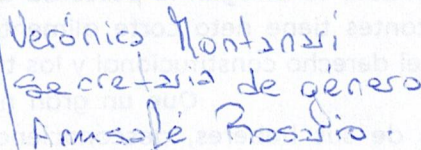 Verónica Montanari
Secretaria de género
Amsafé Rosario.